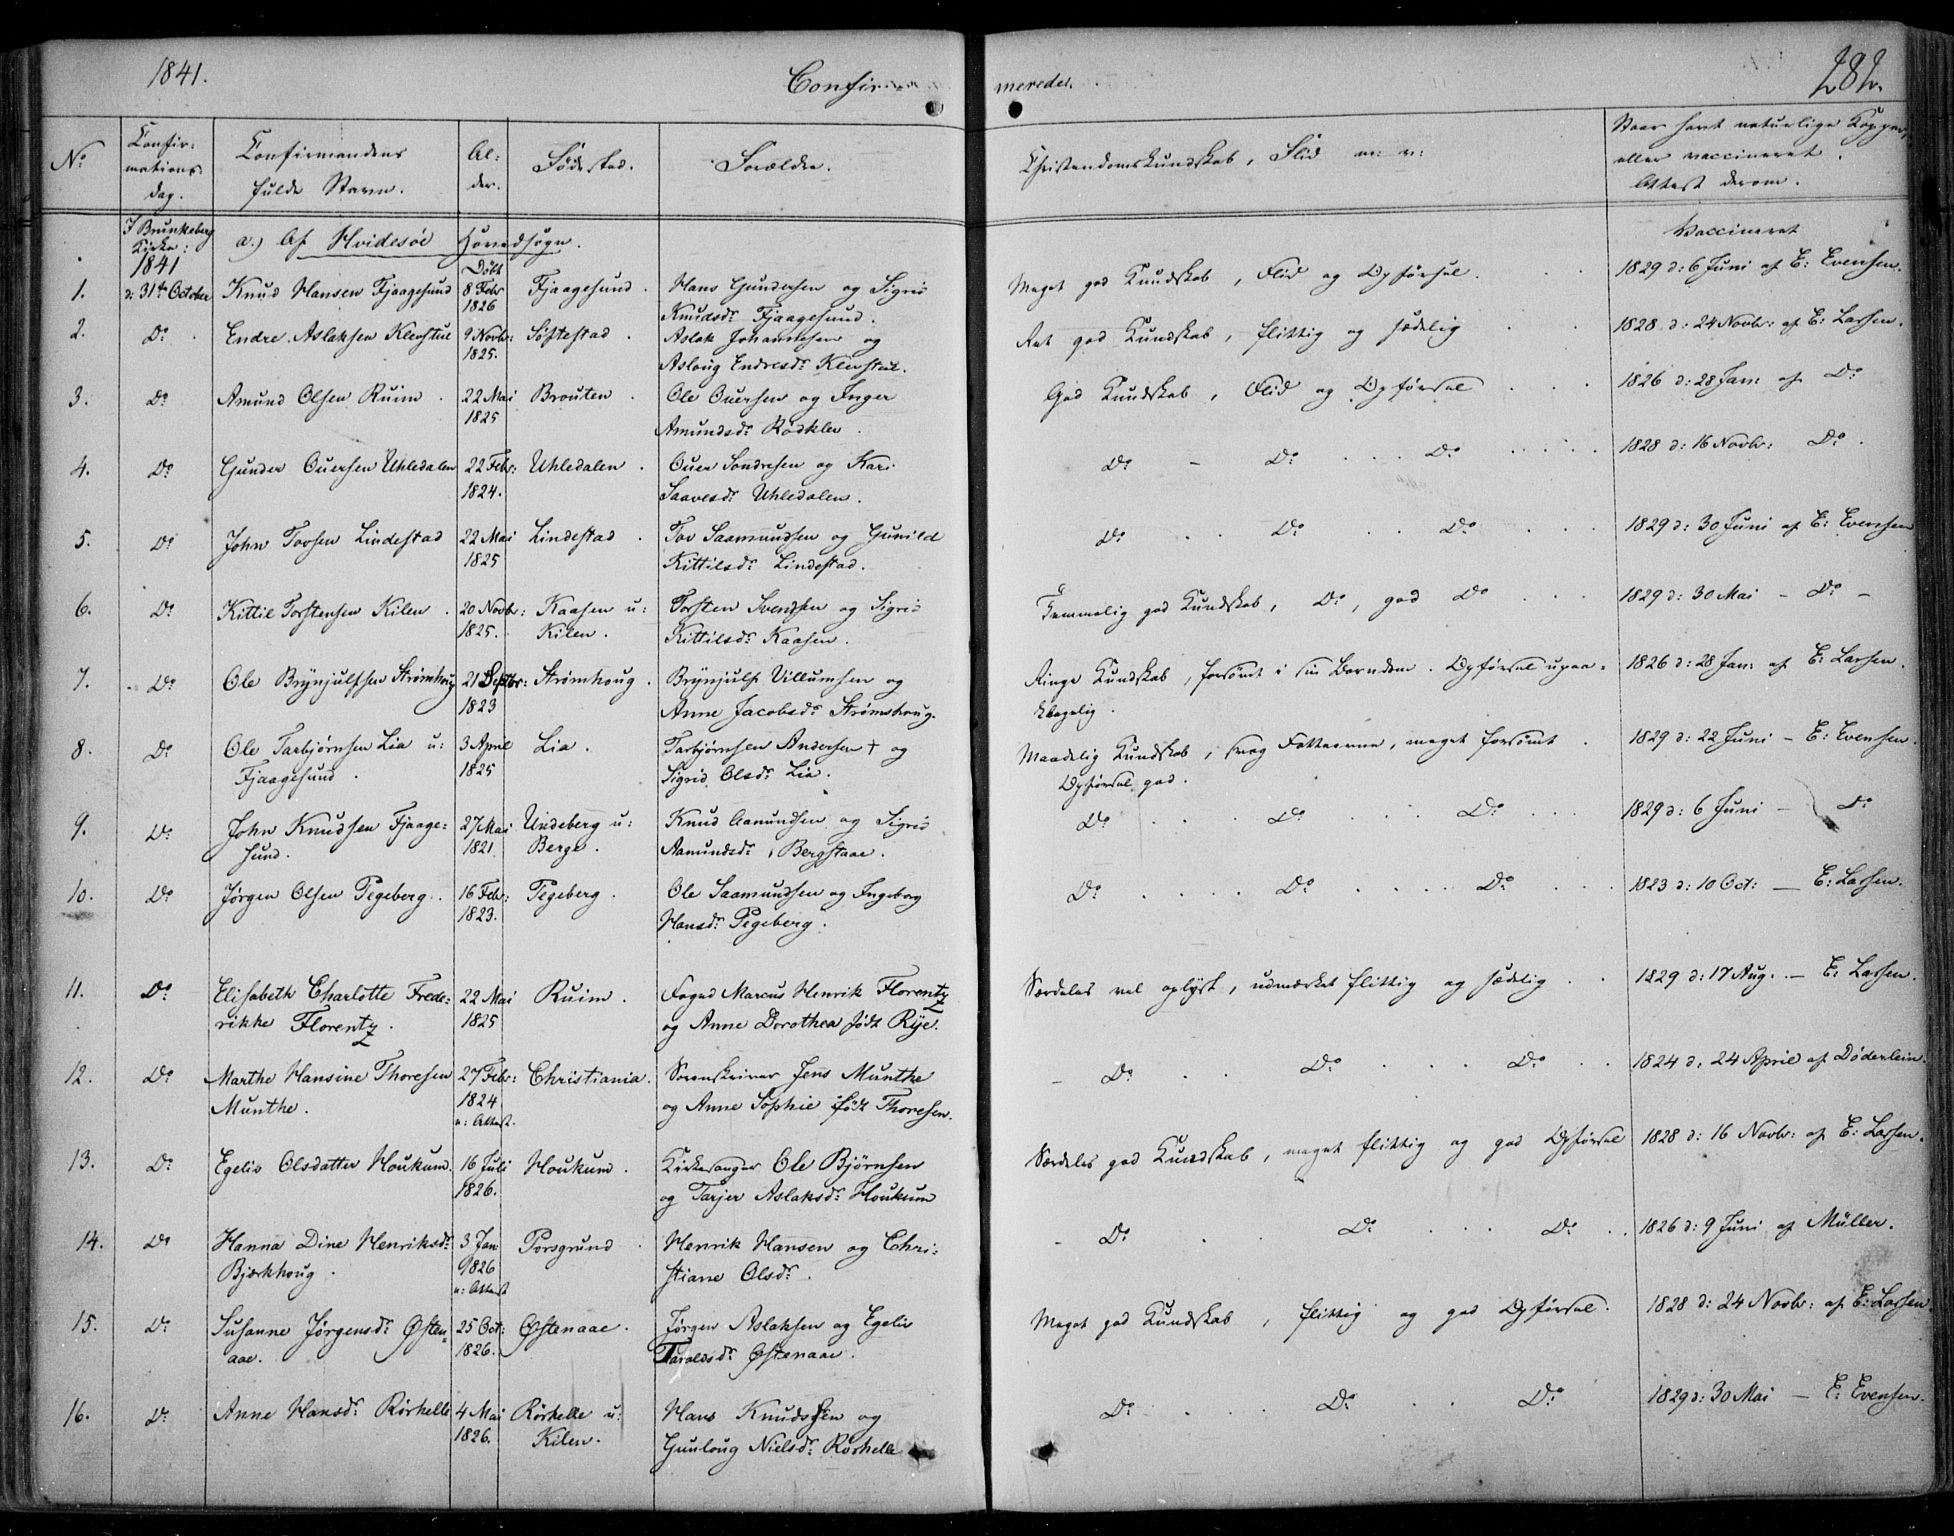 1841.
Confirmerede.
282.
No
Confir-
mations
dag.
Confirmandens
fulde Navn.
Al-
der.
Fødestad.
Forældre.
Christendomskundskab, Flid m: v:
Naar havt naturlige Kopper,
eller vaccineret.
Attest derom.
I Brunkeberg
Kirke:
1841
a.) Af Hvidesøe Hovedsogn.
Vaccineret
1. d: 31te October Knud Hansen Fjaagesund Døbt 8 Febr 1826 Fjaagesund. Hans Gundersen og Sigrid Knudsdr Fjaagesund. Meget god Kundskab, Flid og Opførsel. 1829 d: 6 Juni af E: Evensen.
2. Do Endre Aslaksen Klevstul 9 Novbr: 1825. Søftestad. Aslak Johannesen og Asloug Endresdr Klevstul. Ret god Kundskab, flittig og sædelig 1828 d: 24 Novbr: af E: Larsen.
3. Do Amund Olsen Ruim. 22 Mai 1825 Brouten. Ole Ouersen og Inger Amundsdr Rødklev. God Kundskab, Flid og Opførsel 1826 d: 28 Jan: af Do
4. Do Gunder Ouersen Uhledalen 22 Febr: 1824. Uhledalen. Ouer Sondresen og Kari Saavesdr Uhledalen. Do - Do Do 1828 d: 16 Novbr: Do.
5. Do John Tovsen Lindestad 22 Mai 1825 Lindestad. Tov Saamundsen og Gunild Kittilsdr Lindestad. Do Do Do 1829 d: 30 Juni af E: Evensen
6. Do Kittil Torstensen Kilen. 20 Novbr: 1825. Kaasen u: Kilen. Torsten Svendsen og Sigrid Kittilsdr Kaasen. Temmelig god Kundskab, Do, god Do 1829 d: 30 Mai - Do -
7. Do Ole Brynjulfsen Strømhoug 21 Septbr: 1823 Strømhoug. Brynjulf Villumsen og Anne Jacobsdr Strømshoug. Ringe Kundskab, forsømt i sin Barndom. Opførsel upaaklagelig. 1826 d: 28 Jan: af E: Larsen.
8. Do Ole Tarbjørnsen Lia u: Fjaagesund. 3 April 1825 Lia. Tarbjørnsen Andersen † og Sigrid Olsdr Lia. Maadelig Kundskab, svag Fatteevne, meget forsømt. Opførsel god. 1829 d: 22 Juni - E: Evensen.
9. Do John Knudsen Fjaagesund. 27 Mai 1821 Undeberg u: Berge. Knud Aanundsen og Sigrid Aamundsdr Bergstaae. Do Do Do 1829 d: 6 Juni - Do
10. Do Jørgen Olsen Tegeberg. 16 Febr: 1823. Tegeberg. Ole Saamundsen og Ingeborg Hansdr Tegeberg. Do Do Do 1823 d: 10 Oct: - E: Larsen.
11. Do Elisabeth Charlotte Frederikke Florentz. 22 Mai 1825 Ruim. Foged Marcus Henrik Florentz og Anne Dorothea født Rye. Særdeles vel oplyst, udmærket flittig og sædelig 1829 d: 17 Aug. - E: Larsen.
12. Do Marthe Hansine Thoresen Munthe. 27 Febr: 1824 u: Attest. Christiania. Sorenskriver Jens Munthe og Anne Sophie født Thoresen. - Do Do Do 1824 d: 24 April af Døderlein.
13. Do Egeliv Olsdatter Houkum. 16 Juli 1826. Houkum. Kirkesanger Ole Bjørnsen og Tarjer Aslaksdr Houkum Særdeles god Kundskab, meget flittig og god Opførsel 1828 d: 16 Novbr: af E: Larsen.
14. Do Hanna Dine Henriksdr Bjærkhoug. 3 Jan 1826 u: Attest Porsgrund. Henrik Hansen og Christiane Olsdr. - Do Do Do 1826 d: 9 Juni af Müller.
15. Do Susanne Jørgensdr Østenaae. 25 Oct: 1826. Østenaae. Jørgen Aslaksen og Egeliv Taraldsdr Østenaae. Meget god Kundskab, flittig og god Opførsel. 1828 d: 24 Novbr: af E: Larsen
16. Do Anne Hansdr Rørhelle 4 Mai 1826. Rørhelle u: Kilen. Hans Knudssen og Gunloug Nielsdr Rørhelle Do Do Do 1829 d: 30 Mai - E: Evensen.